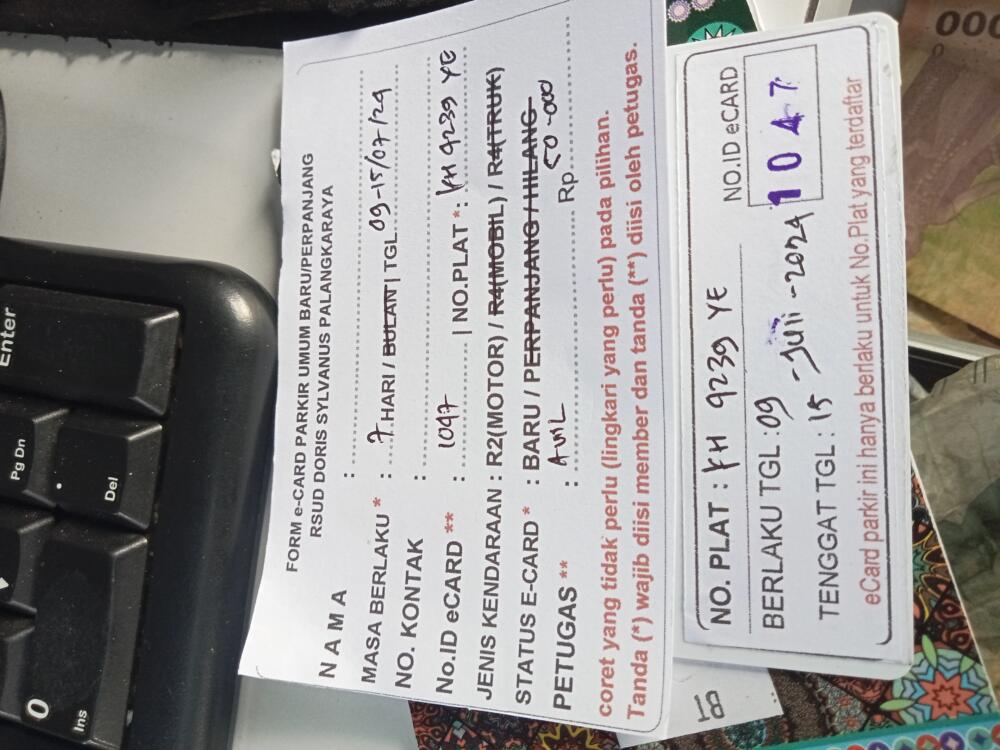 FORM e-CARD PARKIR UMUM BARU/PERPANJANG
RSUD DORIS SYLVANUS PALANGKARAYA
N A M A :
MASA BERLAKU * : 7 HARI / BULAN | TGL 09-15/07/24
NO. KONTAK :
No.ID eCARD ** : 1047 | NO.PLAT * : KH 9239 YE
JENIS KENDARAAN : R2(MOTOR) / R4(MOBIL) / R4(TRUK)
STATUS E-CARD * : BARU / PERPANJANG / HILANG
PETUGAS ** : AML Rp. 50.000
coret yang tidak perlu (lingkari yang perlu) pada pilihan.
Tanda (*) wajib diisi member dan tanda (**) diisi oleh petugas.
NO. PLAT : KH 9239 YE
NO.ID eCARD
1047
BERLAKU TGL : 09
TENGGAT TGL : 15 - Juli - 2024
eCard parkir ini hanya berlaku untuk No.Plat yang terdaftar
Enter
Pg Dn
.
Del
0
Ins
18
000